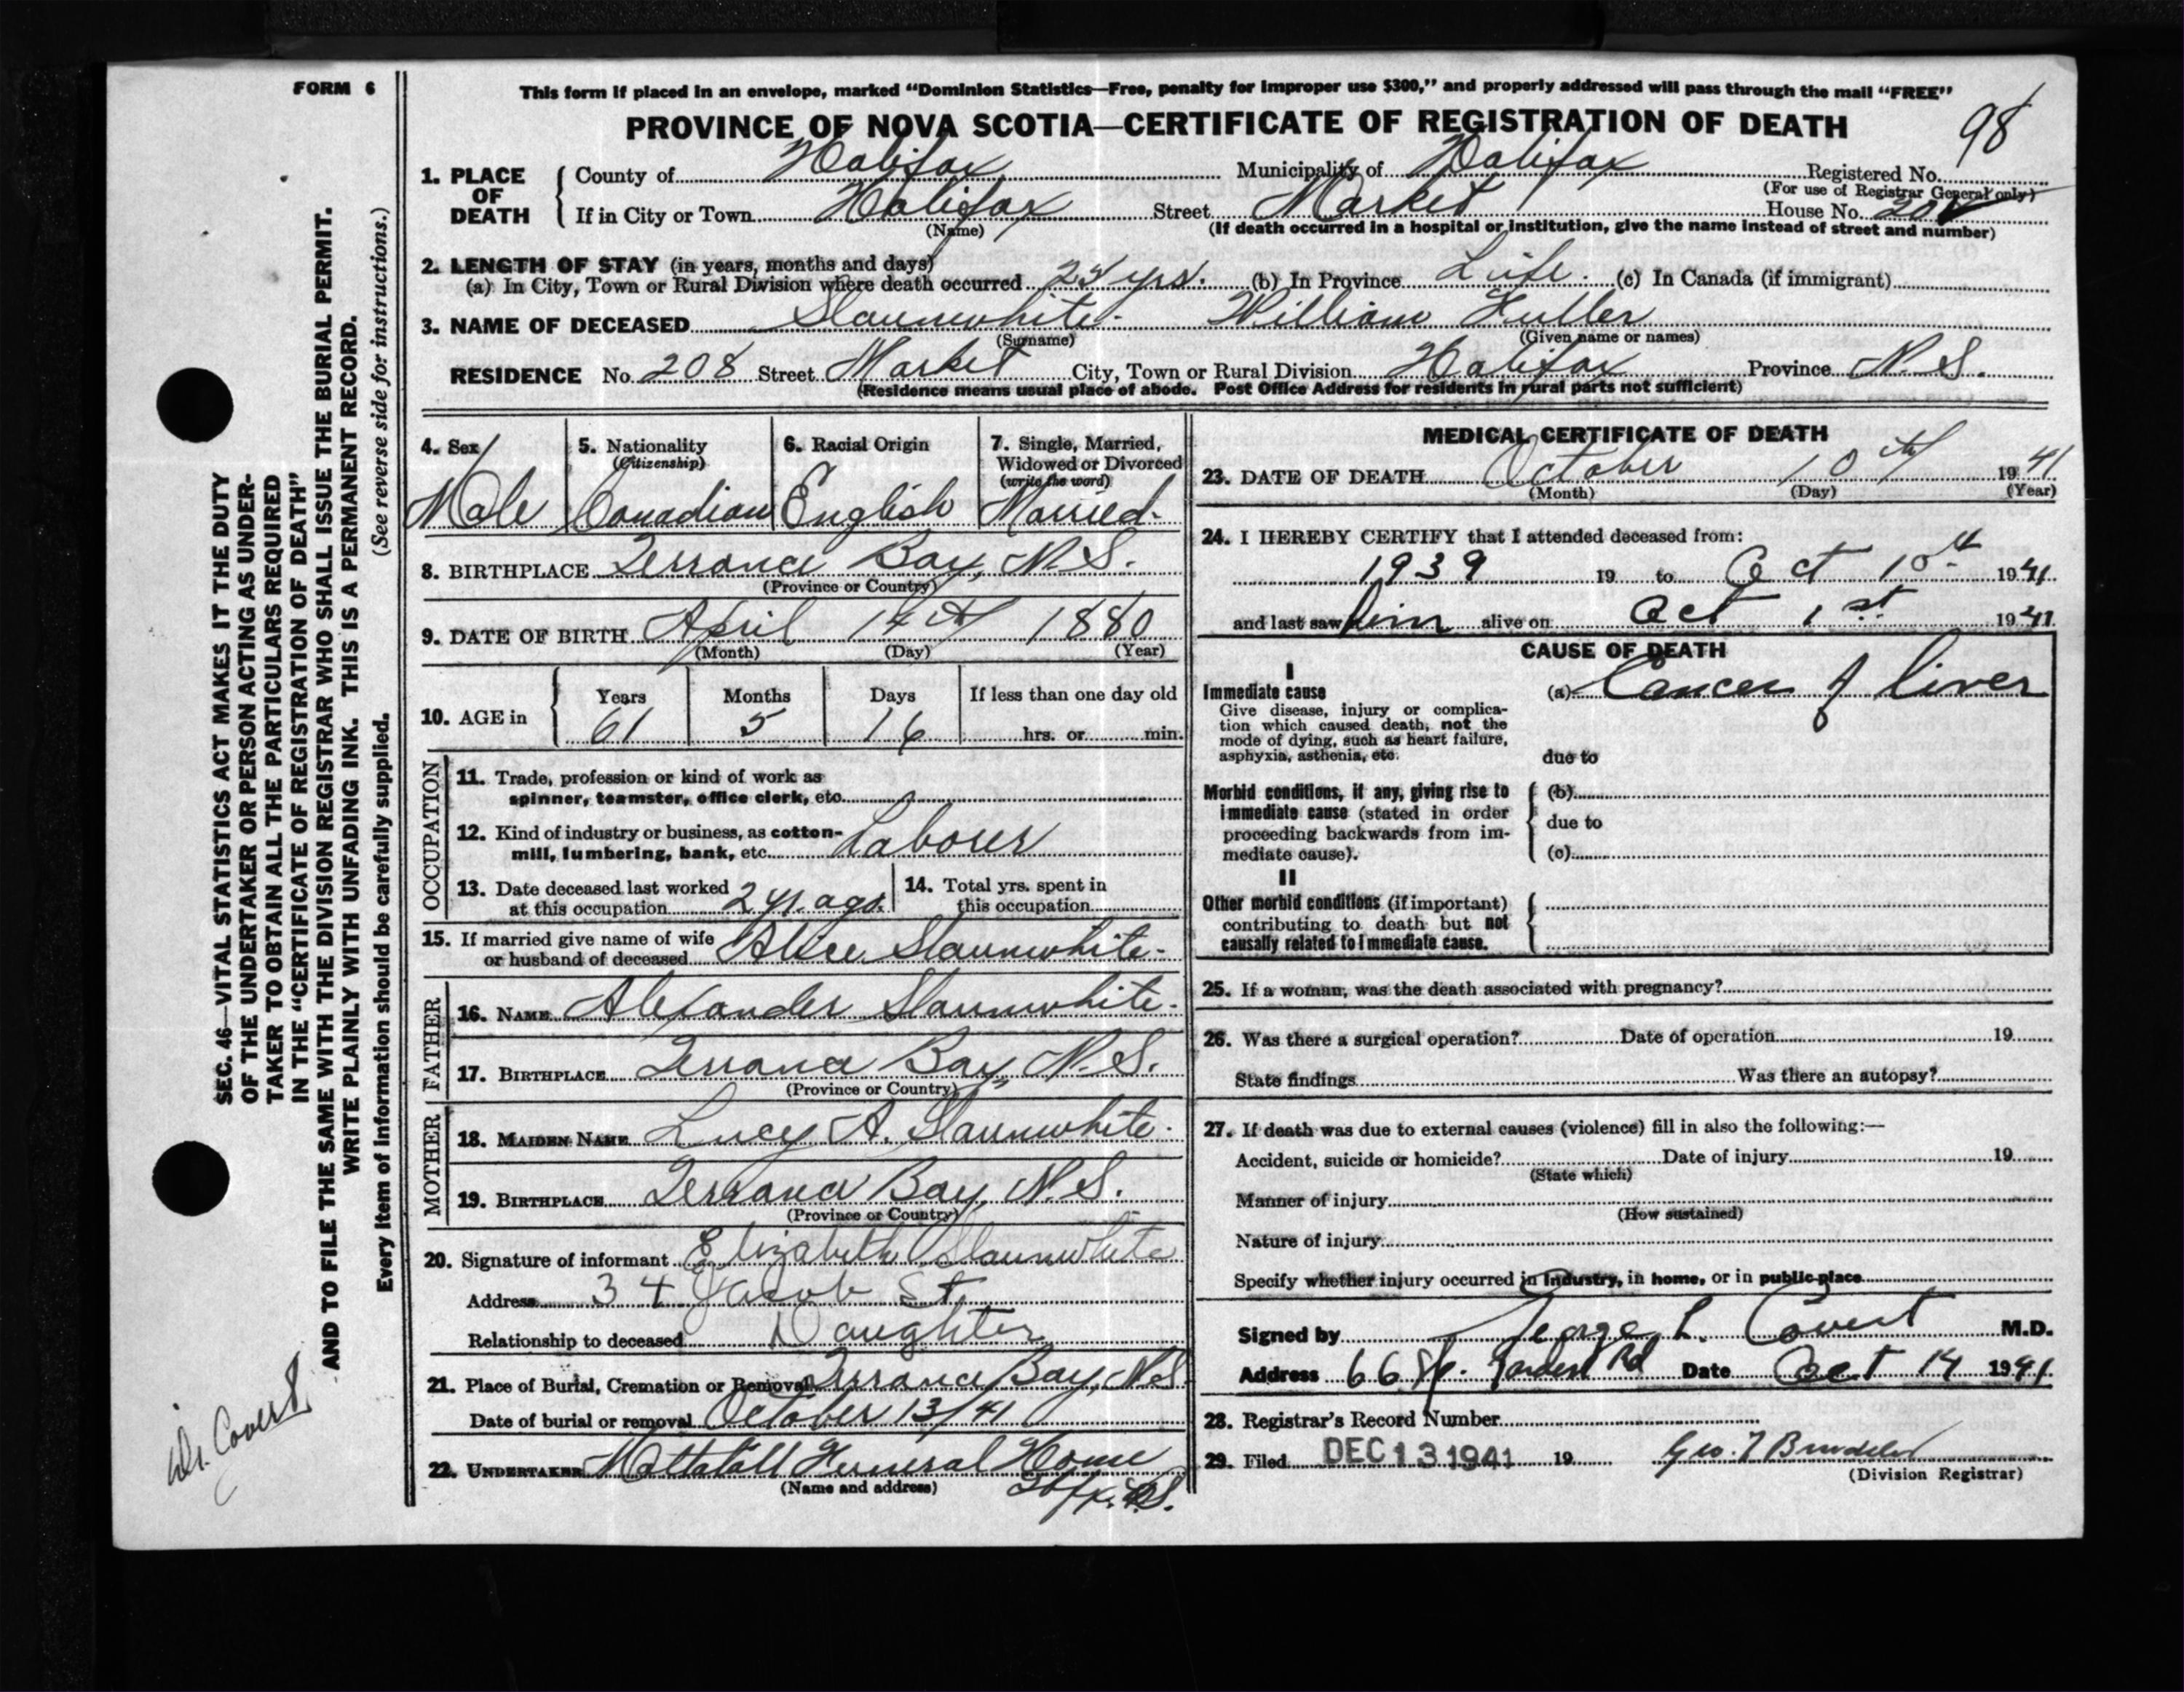 FORM 6
This form if placed in an envelope, marked “Dominion Statistics—Free, penalty for improper use $300,” and properly addressed will pass through the mail “FREE”
PROVINCE OF NOVA SCOTIA—CERTIFICATE OF REGISTRATION OF DEATH
98
1. PLACE OF DEATH
County of Halifax Municipality of Halifax Registered No.
(For use of Registrar General only)
If in City or Town Halifax Street Market House No. 208
(Name) (If death occurred in a hospital or institution, give the name instead of street and number)
2. LENGTH OF STAY (in years, months and days)
(a) In City, Town or Rural Division where death occurred yrs. (b) In Province Life. (c) In Canada (if immigrant)
3. NAME OF DECEASED Slaunwhite- William Fuller
(Surname) (Given name or names)
RESIDENCE No. 208 Street Market City, Town or Rural Division Halifax Province N.S.
(Residence means usual place of abode. Post Office Address for residents in rural parts not sufficient)
4. Sex
Male
5. Nationality
(Citizenship)
Canadian
6. Racial Origin
English
7. Single, Married,
Widowed or Divorced
(write the word)
Married-
8. BIRTHPLACE Terrance Bay, N.S.
(Province or Country)
9. DATE OF BIRTH April 14th 1880
(Month) (Day) (Year)
10. AGE in
Years Months Days If less than one day old
61 5 16 hrs. or min.
OCCUPATION
11. Trade, profession or kind of work as
spinner, teamster, office clerk, etc.
12. Kind of industry or business, as cotton-
mill, lumbering, bank, etc. Labourer
13. Date deceased last worked
at this occupation 2 yr. ago.
14. Total yrs. spent in
this occupation
15. If married give name of wife
or husband of deceased Alice Slaunwhite-
FATHER
16. NAME Alexander Slaunwhite-
17. BIRTHPLACE Terrance Bay, N.S.
(Province or Country)
MOTHER
18. MAIDEN NAME Lucy A. Slaunwhite-
19. BIRTHPLACE Terrance Bay, N.S.
(Province or Country)
20. Signature of informant Elizabeth Slaunwhite
Address 34 Jacob St.
Relationship to deceased Daughter
21. Place of Burial, Cremation or Removal Terrance Bay, N.S.
Date of burial or removal October 13/41
22. UNDERTAKER Mattatall Funeral Home
(Name and address) Hfx. N.S.
MEDICAL CERTIFICATE OF DEATH
23. DATE OF DEATH October 10th 1941
(Month) (Day) (Year)
24. I HEREBY CERTIFY that I attended deceased from:
1939 19 to Oct 10th 1941
and last saw him alive on Oct 1st 1941
CAUSE OF DEATH
I
Immediate cause
Give disease, injury or complica-
tion which caused death, not the
mode of dying, such as heart failure,
asphyxia, asthenia, etc.
(a) Cancer of liver
due to
Morbid conditions, if any, giving rise to
immediate cause (stated in order
proceeding backwards from im-
mediate cause).
(b)
due to
(c)
II
Other morbid conditions (if important)
contributing to death but not
causally related to immediate cause.
25. If a woman, was the death associated with pregnancy?
26. Was there a surgical operation? Date of operation 19
State findings Was there an autopsy?
27. If death was due to external causes (violence) fill in also the following:—
Accident, suicide or homicide? Date of injury 19
(State which)
Manner of injury
(How sustained)
Nature of injury
Specify whether injury occurred in industry, in home, or in public place
Signed by George L. Covert M.D.
Address 66 Rd Date Oct 14 1941
28. Registrar's Record Number
29. Filed DEC 13 1941 19 Geo.
(Division Registrar)
SEC. 46—VITAL STATISTICS ACT MAKES IT THE DUTY
OF THE UNDERTAKER OR PERSON ACTING AS UNDER-
TAKER TO OBTAIN ALL THE PARTICULARS REQUIRED
IN THE “CERTIFICATE OF REGISTRATION OF DEATH”
AND TO FILE THE SAME WITH THE DIVISION REGISTRAR WHO SHALL ISSUE THE BURIAL PERMIT.
WRITE PLAINLY WITH UNFADING INK. THIS IS A PERMANENT RECORD.
Every item of information should be carefully supplied. (See reverse side for instructions.)
Dr. Covert